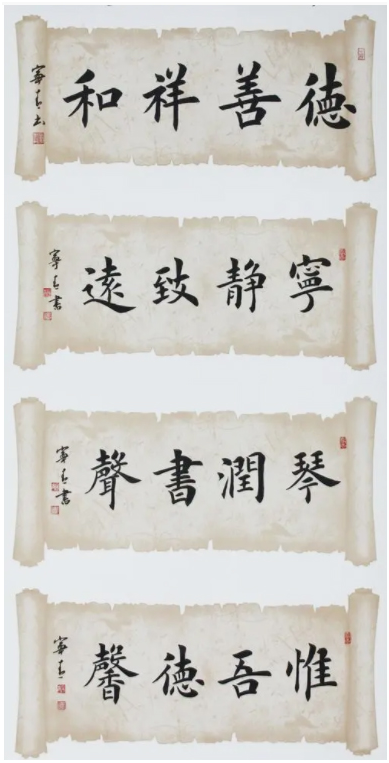 德善祥和
寧静致遠
琴潤書聲
惟吾德馨